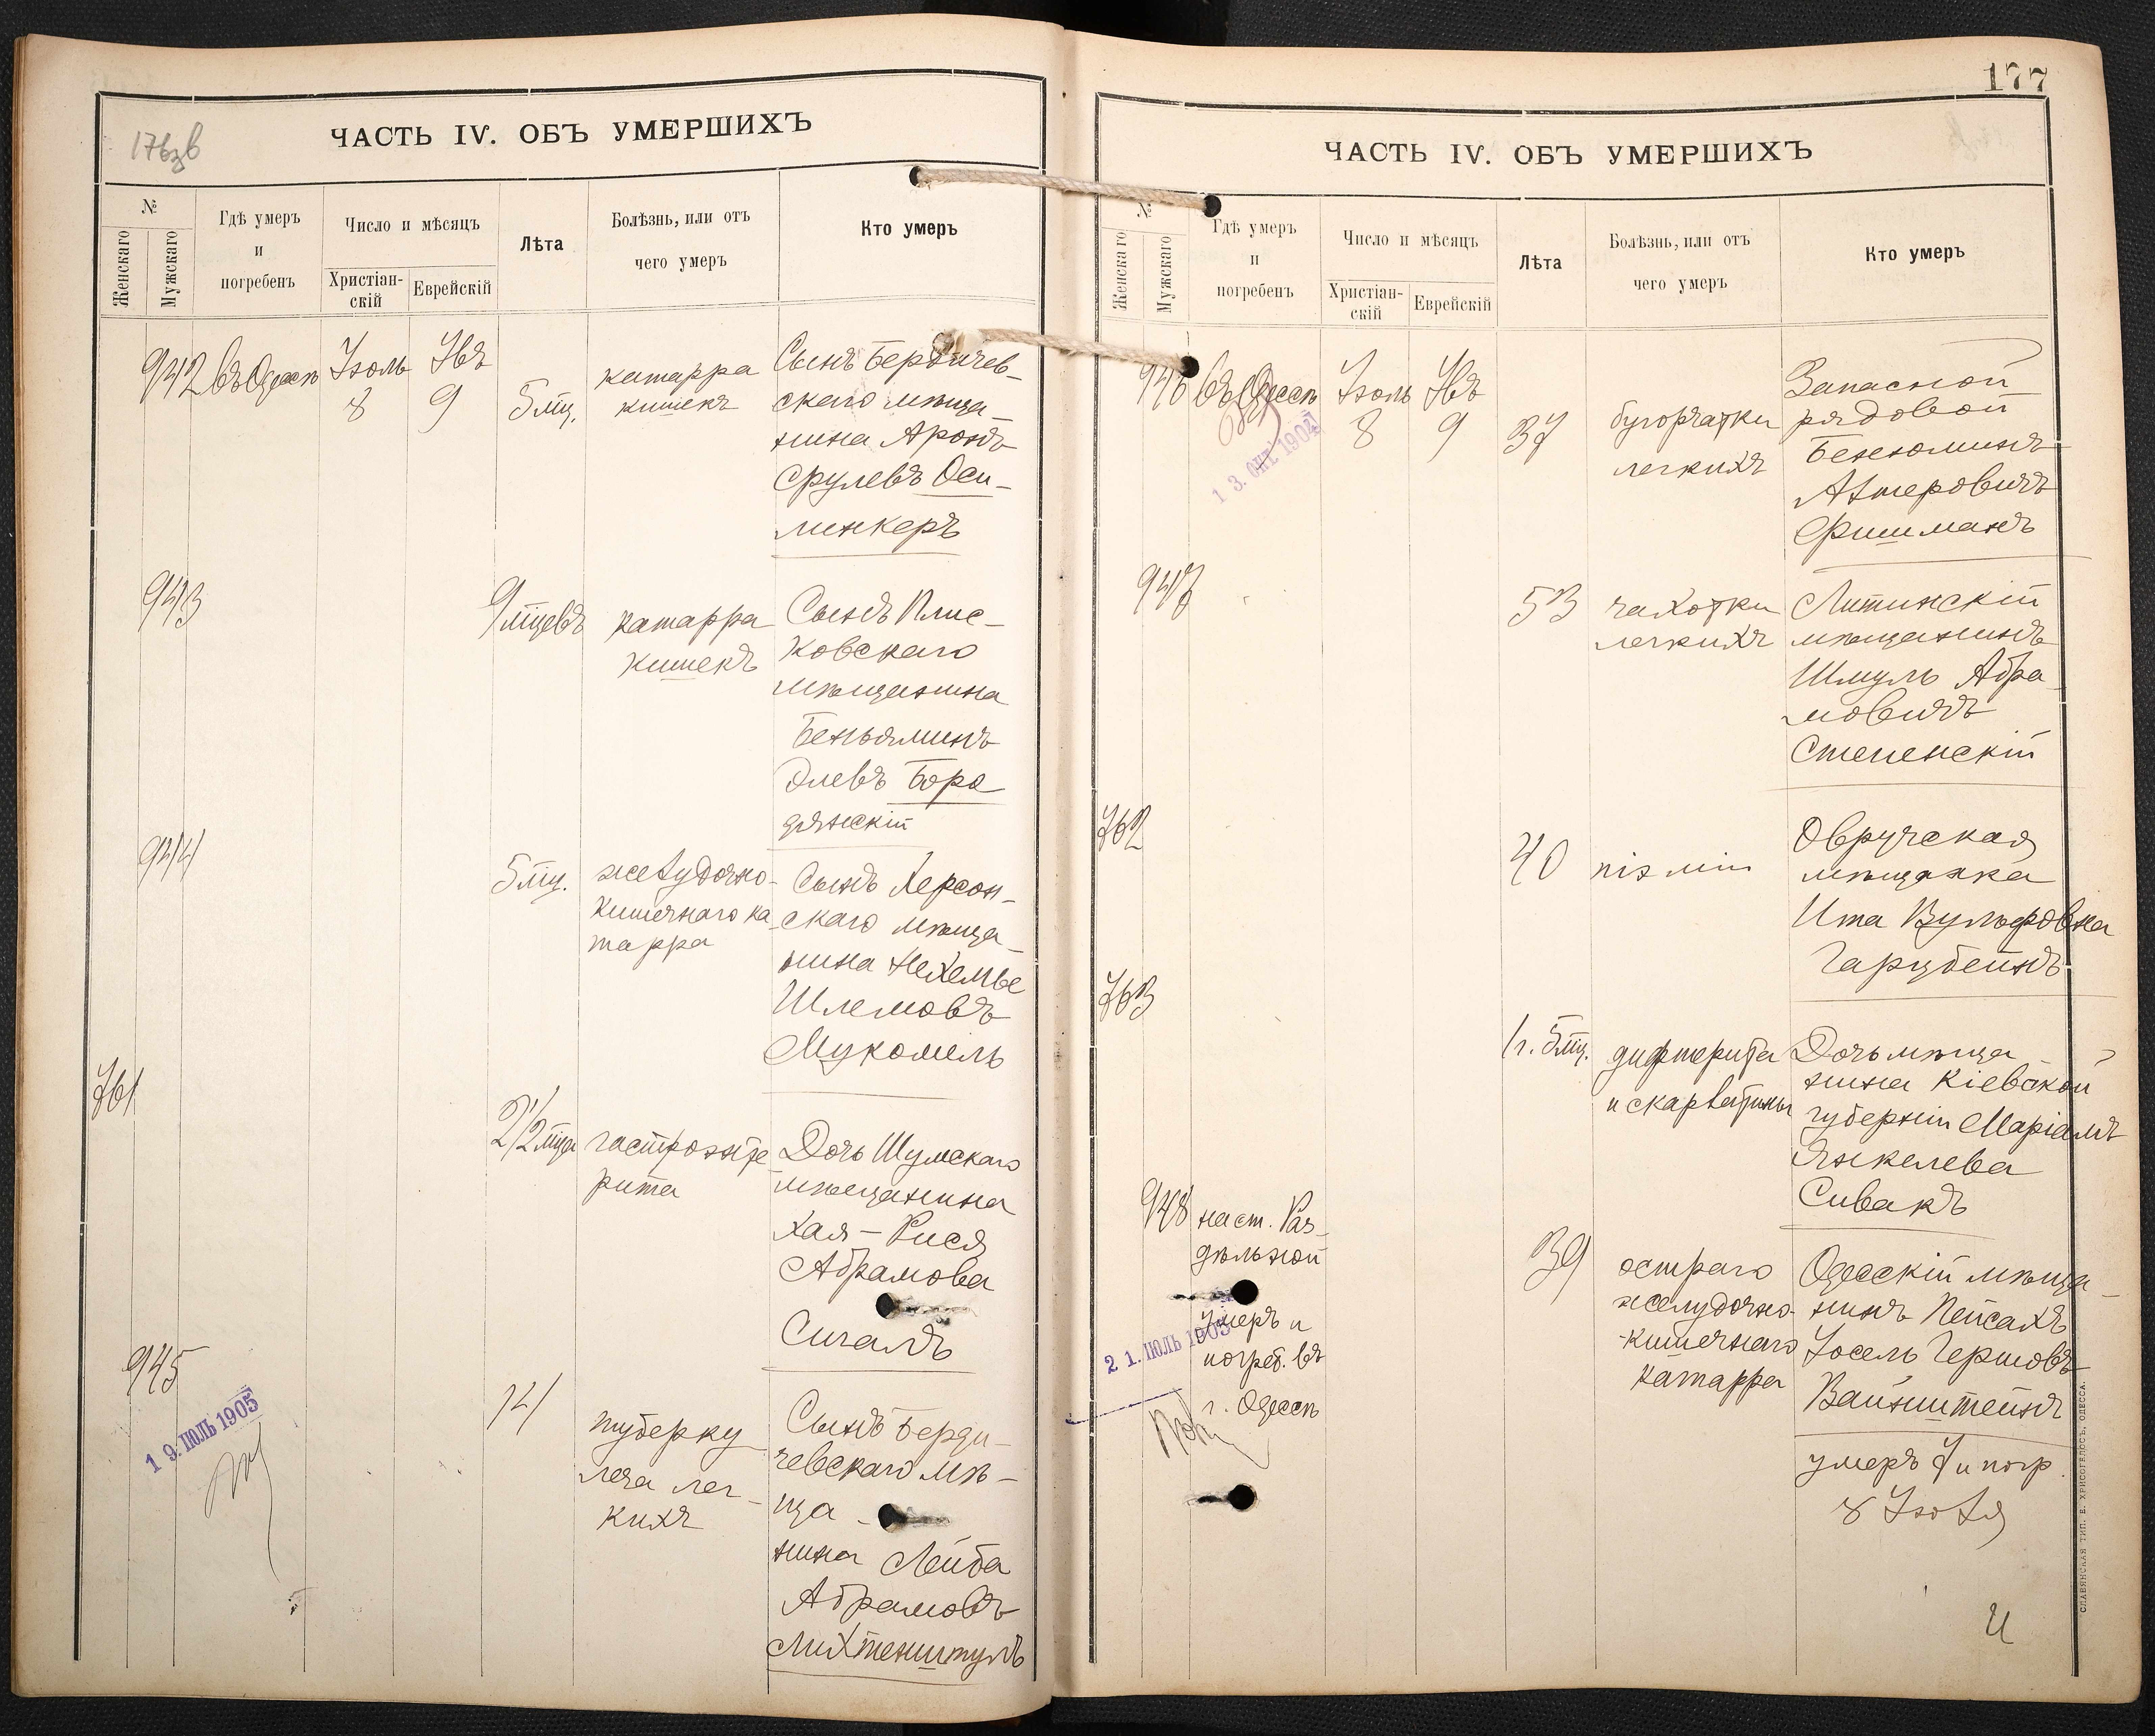 176зв
ЧАСТЬ IV. ОБЪ УМЕРШИХЪ
№
Женскаго
Мужскаго
Гдѣ умеръ
и
погребенъ
Число и мѣсяцъ
Христіан-
скій
Еврейскій
Лѣта
Болѣзнь, или отъ
чего умеръ
Кто умеръ
942
въ Одессѣ
Іюль
8
Авъ
9
5 мц.
катарра
кишекъ
Сынъ Бердичев-
скаго мѣща-
нина Аронъ
Срулевъ Оси-
линкеръ
943
9 мцевъ
катарра
кишекъ
Сынъ Плис-
ковскаго
мѣщанина
Беньяминъ
Элевъ Боро
дянскій
944
5 мц.
желудочно-
кишечнаго ка
тарра
Сынъ Херсон-
скаго мѣща-
нина Нехемье
Шлемовъ
Мукомель
761
2 1/2 мца
гастроэнте
рита
Дочь Шумскаго
мѣщанина
Хая-Рися
Абрамова
Сигалъ
945
19. ІЮЛЬ 1905
14
туберку
леза лег-
кихъ
Сынъ Берди-
чевскаго мѣ-
ща-
нина Лейба
Абрамовъ
Лихтенштулъ
177
ЧАСТЬ IV. ОБЪ УМЕРШИХЪ
№
Женскаго
Мужскаго
Гдѣ умеръ
и
погребенъ
Число и мѣсяцъ
Христіан-
скій
Еврейскій
Лѣта
Болѣзнь, или отъ
чего умеръ
Кто умеръ
946
въ Одессѣ
13. ОКТ. 1904
Іюль
8
Авъ
9
37
бугорчатки
легкихъ
Запасной
рядовой
Бенюминъ
Аншеровичъ
Фишманъ
947
53
чахотки
легкихъ
Литинскій
мѣщанинъ
Шмуль Абра-
мовичъ
Степенскій
762
40
Овручская
мѣщанка
Ита Вульфовна
Гарцбейнъ
763
1 г. 5 мц.
дифтерита
и скарлатины
Дочь мѣща-
нина Кіевской
губерніи Маріамъ
Янкелева
Сивакъ
948
на ст. Раз-
дѣльной
умеръ и
погреб. въ
г. Одессѣ
21. ІЮЛЬ 1905
39
остраго
желудочно-
-кишечнаго
катарра
Одесскій мѣща-
нинъ Пейсахъ
Іосель Гершовъ
Вайнштейнъ
умеръ 7 и погр.
8 Іюля
СЛАВЯНСКАЯ ТИП. Е. ХРИСОГЕЛОСЪ, ОДЕССА.